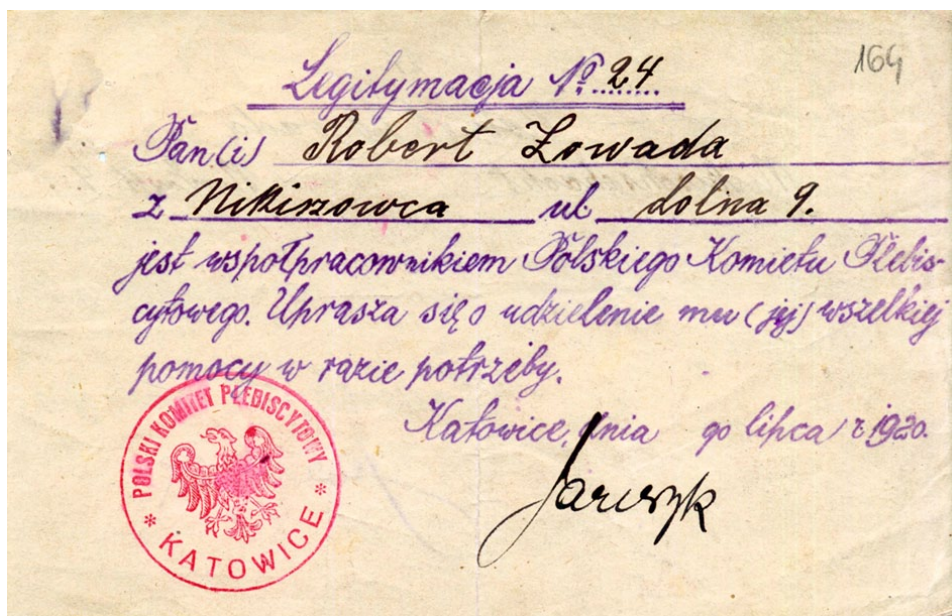 164
Legitymacja № 24
Pan(i) Robert Zowada
z Nikiszowca ul dolna 9.
jest współpracownikiem Polskiego Komietu Plebis-
cytowego. Uprasza się o udzielenie mu (jej) wszelkiej
pomocy w razie potrzeby.
Katowice, dnia 90 lipca r 1920.
POLSKI KOMITET PLEBISCYTOWY
* KATOWICE *